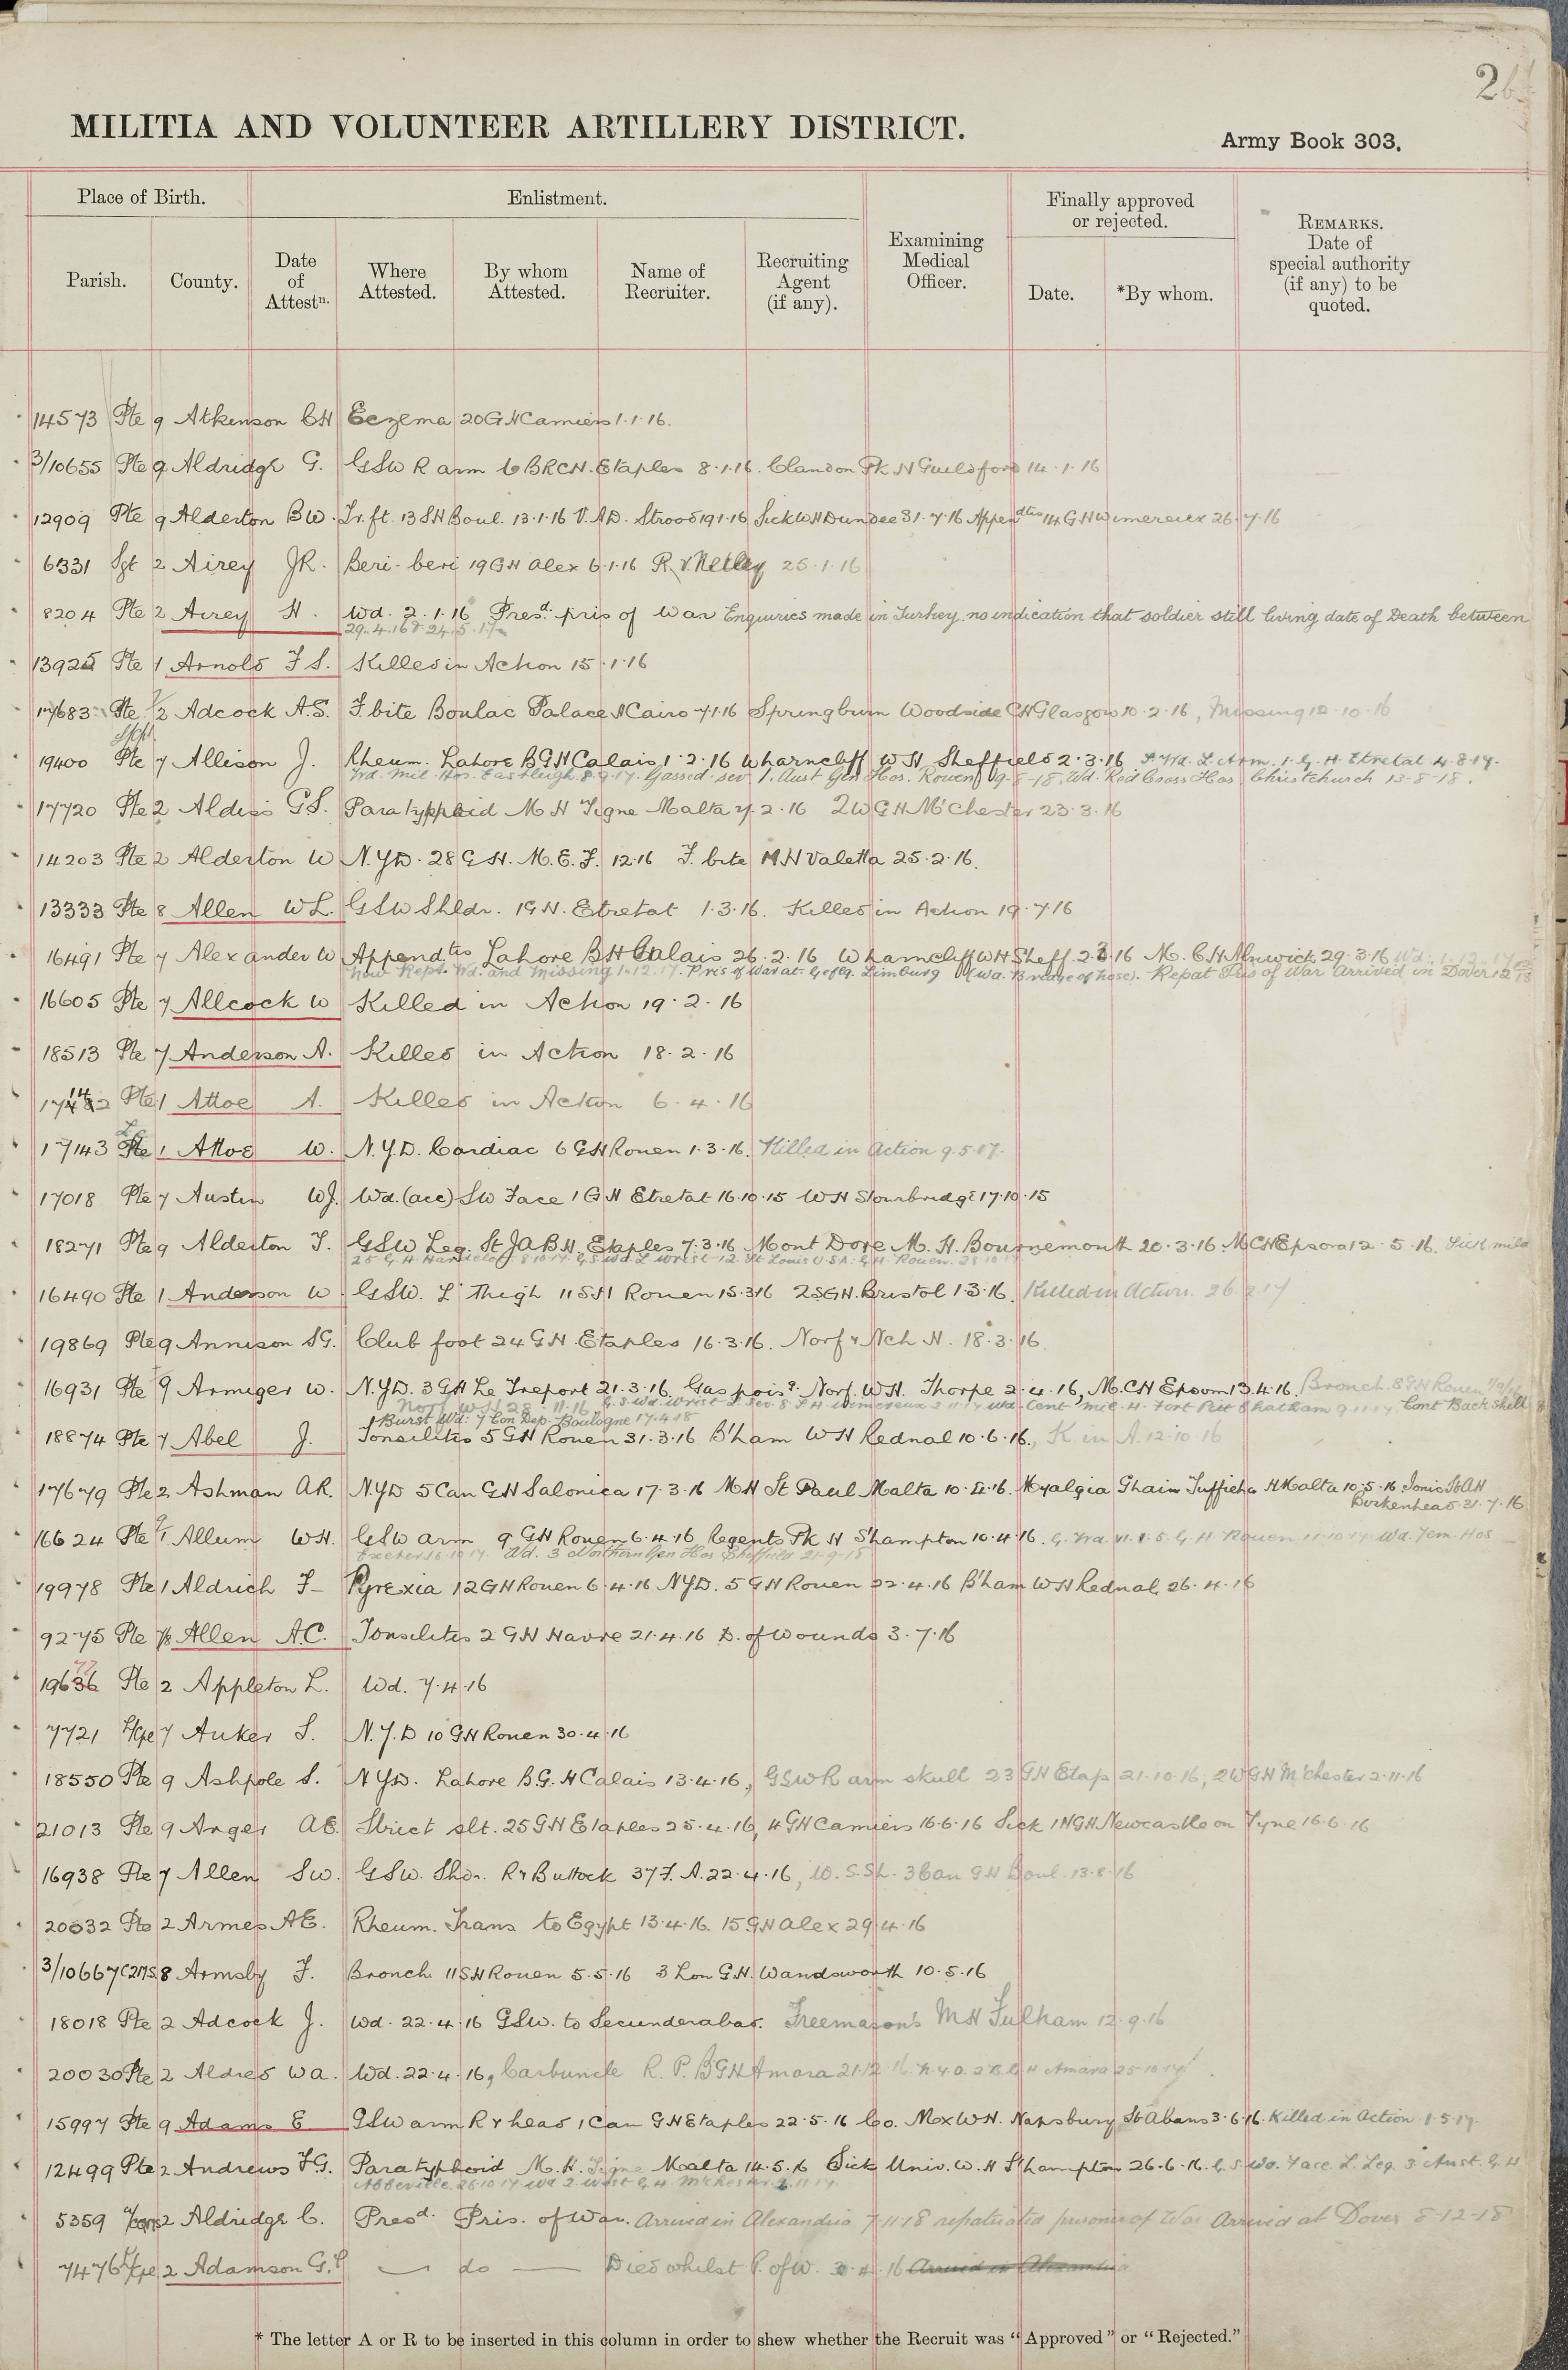 2
MILITIA AND VOLUNTEER ARTILLERY DISTRICT.
Army Book 303.
Place of Birth. Enlistment. Examining Medical Officer. Finally approved or rejected. REMARKS. Date of special authority (if any) to be quoted.
Parish. County. Date of Attestn. Where Attested. By whom Attested. Name of Recruiter. Recruiting Agent (if any). Date. *By whom.
14573 Pte 9 Atkinson CH Eczema 20 GH Camiers 1.1.16.
3/10655 Pte 9 Aldridge G. GSW R arm 6 BRCH. Etaples 8.1.16. Clandon Pk H Guildford 14.1.16
12909 Pte 9 Alderton BW. Tr. ft. 13 SH Boul. 13.1.16 V.A.D. Strood 19.1.16 Sick WH Dundee 31.7.16 Appendtis 14 GH Wimereux 26.7.16
6331 Sgt 2 Airey JR. Beri-beri 19 GH Alex 6.1.16 R.V. Netley 25.1.16
8204 Pte 2 Airey H. Wd. 7.1.16 Presd. pris of War Enquiries made in Turkey. no indication that soldier still living date of Death between
29.4.16 & 24.5.17
13925 Pte 1 Arnold FS. Killed in Action 15.1.16
17683 Pte 2 Adcock A.S. F.bite Boulac Palace H Cairo 7.1.16 Springburn Woodside CH Glasgow 10.2.16, Missing 12.10.16
19400 Pte 7 Allison J. Rheum. Lahore BGH Calais 1.2.16 Wharncliff WH Sheffield 2.3.16 L Arm. 1. G. H. Etretat 4.8.17.
Wd. Mil. Hos. Eastleigh 8.9.17. Gassed. sev 1. Aust Gen Hos. Rouen 9.8.18. Wd. Red Cross Hos. Christchurch 13.8.18.
17720 Pte 2 Aldiss GS. Paratyphoid M H Tigne Malta 7.2.16 2WGH M'Chester 23.3.16
14203 Pte 2 Alderton W N.Y.D. 28 G.H. M.E.F. 12.16 F. bite MH Valetta 25.2.16.
13333 Pte 8 Allen WL. GSW Shldr. 1 GH. Etretat 1.3.16. Killed in Action 19.7.16
16491 Pte 7 Alexander W Appendtis Lahore BH Calais 26.2.16 Wharncliff WH Sheff. 2.3.16 M.C.H Alnwick 29.3.16 Wd. 1.12.17
now Rept. Wd. and Missing 1.12.17. Pris of War at Limburg (Wd. Bridge of nose). Repat Pris of War arrived in Dover
16605 Pte 7 Allcock W Killed in Action 19.2.16
18513 Pte 7 Anderson A. Killed in Action 18.2.16
Pte 1 Attoe A. Killed in Action 6.4.16
17143 Pte 1 Attoe W. N.Y.D. Cardiac 6 GH Rouen 1.3.16. Killed in Action 9.5.17.
17018 Pte 7 Austin WJ. Wd. (acc) SW Face 1 GH Etretat 16.10.15 WH Stourbridge 17.10.15
18271 Pte 9 Alderton T. GSW Leg. St JABH. Etaples 7.3.16. Mont Dore M.H. Bournemouth 20.3.16. MCH Epsom 12.5.16. Sick mild
25 G.H. Hardelot. 8.10.17. G.S.Wd. L wrist 12. St Louis U.S.A. G.H. Rouen. 28.10.17
16490 Pte 1 Anderson W. GSW. L Thigh 11 SH Rouen 15.3.16 2SGH. Bristol 1.3.16. Killed in Action. 26.2.17
19869 Pte 9 Annison SG. Club foot 24 GH Etaples 16.3.16. Norf & Nch H. 18.3.16.
16931 Pte 9 Armiger W. N.Y.D. 3 GH Le Treport 21.3.16. Gas pois. Norf. W.H. Thorpe 2.4.16, M.CH Epsom 13.4.16. Bronch. 8 GH Rouen
Norf WH 28.11.16 G.S.Wd. Wrist L. Sev. 8 GH Wimereux 2.11.17 Wd. Cent Mil. H. Fort Pitt Chatham 9.11.17 Cont Back shell
Burst Wd: 7 Con Dep. Boulogne 17.4.18
18874 Pte 7 Abel J. Tonsilitis 5 GH Rouen 31.3.16 B'ham WH Rednal 10.6.16., K in A. 12.10.16
17679 Pte 2 Ashman AR. NYD 5 Can GH Salonica 17.3.16 MH St Paul Malta 10.4.16. Myalgia Ghain Tuffieha H Malta 10.5.16 Ionic
Birkenhead 21.7.16
16624 Pte 1 Allum WH. GSW arm 9 GH Rouen 6.4.16 Regents Pk H S'hampton 10.4.16. 5 G H Rouen 11.10.17. Wd. Tem. Hos
Exeter 16.10.17. Wd. 3 Northern Gen Hos Sheffield 21.9.18
19978 Pte 1 Aldrich F Pyrexia 12 GH Rouen 6.4.16 NYD. 5 GH Rouen 22.4.16 B'ham WH Rednal. 26.4.16
9275 Pte 7/8 Allen A.C. Tonsilitis 2 GH Havre 21.4.16 D. of Wounds 3.7.16
19636 77 Pte 2 Appleton L. Wd. 7.4.16
7721 L/Cpe 7 Auker S. N.Y.D 10 GH Rouen 30.4.16
18550 Pte 9 Ashpole S. NYD. Lahore B.G.H Calais 13.4.16, GSW R arm skull 23 GH Etap 21.10.16, 2WGH M'chester 2.11.16
21013 Pte 9 Anger AE. Strict slt. 25 GH Etaples 25.4.16, 4 GH Camiers 16.6.16 Sick 1 NGH Newcastle on Tyne 16.6.16
16938 Pte 7 Allen SW. GSW. Shdr. R & Buttock 37 F.A. 22.4.16, W. S.Sh. 3 Can GH Boul. 13.8.16
20032 Pte 2 Armes AE. Rheum. Trans to Egypt 13.4.16. 15 GH Alex 29.4.16
3/10667 CQMS. 8 Armsby F. Bronch. 11 SH Rouen 5.5.16 3 Lon G.H. Wandsworth 10.5.16
18018 Pte 2 Adcock J. Wd. 22.4.16 GSW. to Secunderabad. Freemasons MH Fulham 12.9.16
20030 Pte 2 Aldred WA. Wd. 22.4.16, Carbuncle R.P. BGH Amara 21.12.16. N.Y.D. 2 B.G.H Amara 25.10.17
15997 Pte 9 Adams E GSW arm R & head 1 Can GH Etaples 22.5.16 Co. Mx WH. Napsbury St Abans 3.6.16. Killed in Action 1.5.17.
12499 Pte 2 Andrews FG. Paratyphoid M.H. Tigne Malta 14.5.16 Sick Univ. W.H S'hampton 26.6.16. G.S.Wd. Face. L. Leg. 3 Aust. G.H
Abbeville. 26.10.17 Wd 2 West G.H. M'chester 2.11.17
5359 2 Aldridge C. Presd. Pris. of War. Arrived in Alexandria 7.11.18 repatriated prisoner of War Arrived at Dover 8-12-18
7476 L/Cpe 2 Adamson G.P — do — Died whilst P. of W. 3.4.16 Arrived in Alexandria
* The letter A or R to be inserted in this column in order to shew whether the Recruit was "Approved" or "Rejected."